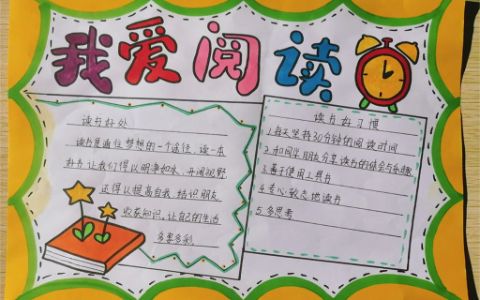 我爱阅读
读书好处
读书是通往梦想的一个途径,读一本
好书,让我们得以明净如水,开阔视野
还得以提高自我,结识朋友
收获知识,让自己的生活
多姿多彩
读书好习惯
1.每天坚持30分钟的阅读时间
2.和同学朋友分享读书的体会与乐趣
3.善于使用工具书
4.专心致志地读书
5.多思考